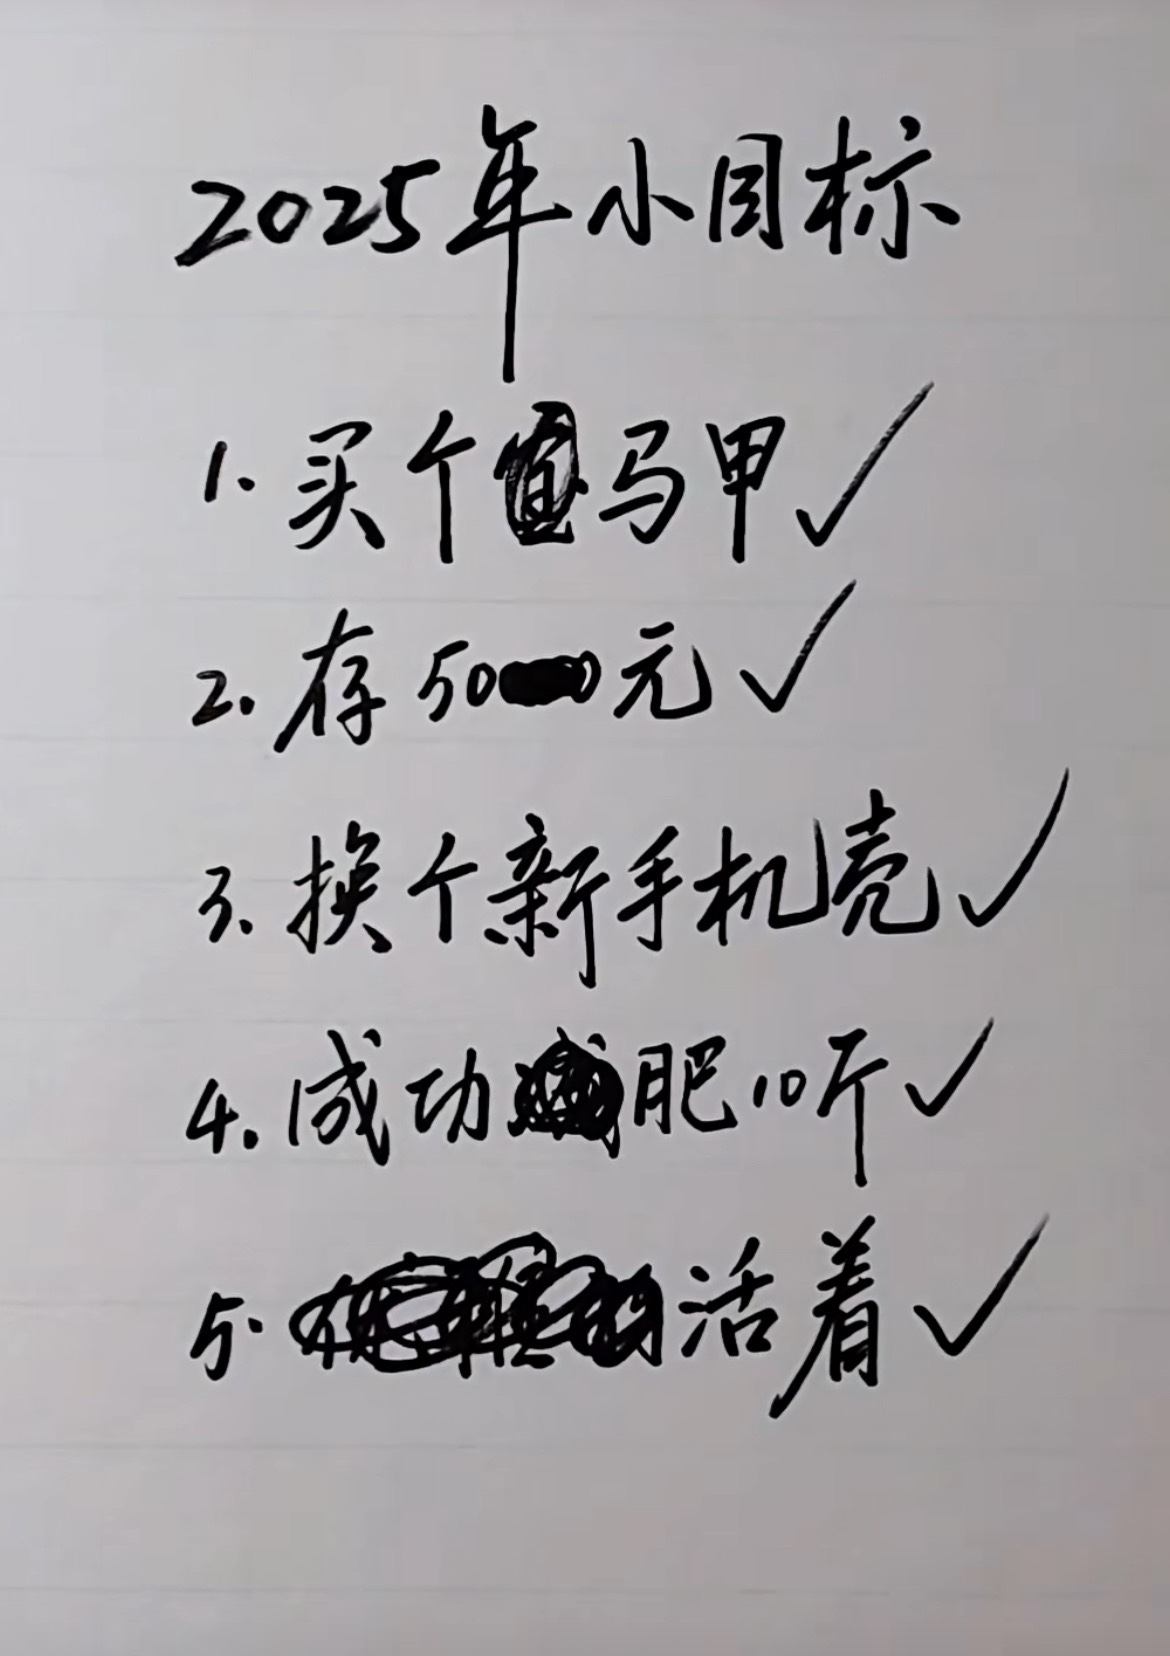 2025年小目标
1. 买个马甲✓
2. 存500元✓
3. 换个新手机壳✓
4. 成功肥10斤✓
5. 活着✓